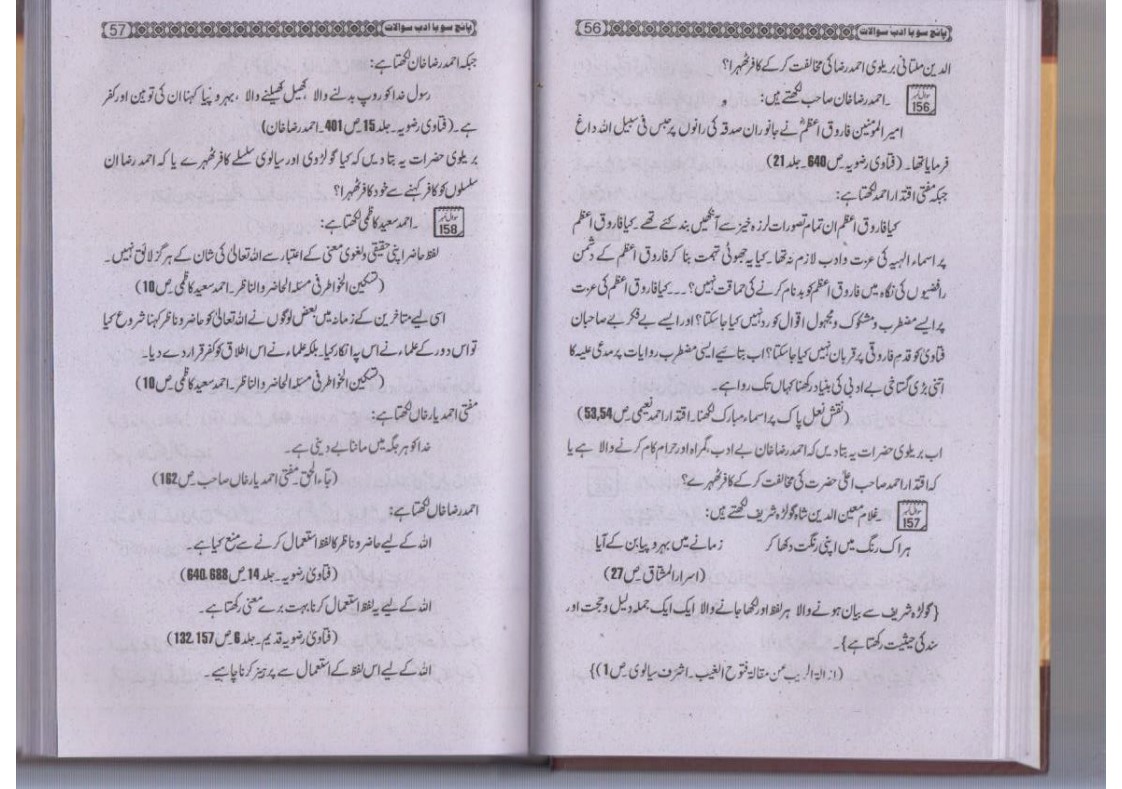 پانچ سو با ادب سوالات 56
الدین ملتانی بریلوی احمد رضا کی مخالفت کر کے کافر ٹھہرا؟
سوال نمبر 156 ۔احمد رضا خان صاحب لکھتے ہیں:
امیر المؤمنین فاروق اعظمؓ نے جانوران صدقہ کی رانوں پر حبس فی سبیل اللہ داغ
فرمایا تھا۔ (فتاوی رضویہ ص 640۔ جلد 21)
جبکہ مفتی اقتدار احمد لکھتا ہے:
کیا فاروق اعظم ان تمام تصورات لرزہ خیز سے آنکھیں بند کئے تھے۔ کیا فاروق اعظم
پر اسماء الہیہ کی عزت و ادب لازم نہ تھا۔ کیا یہ جھوٹی تہمت بنا کر فاروق اعظم کے دشمن
رافضیوں کی نگاہ میں فاروق اعظم کو بدنام کرنے کی حماقت نہیں؟۔۔۔ کیا فاروق اعظم کی عزت
پر ایسے مضطرب و مشکوک و مجہول اقوال کو رد نہیں کیا جا سکتا؟ اور ایسے بے فکر بے صاحبان
فتاوی کو قدم فاروقی پر قربان نہیں کیا جا سکتا؟ اب بتائیے ایسی مضطرب روایات پر مدعی علیہ کا
اتنی بڑی گستاخی بے ادبی کی بنیاد رکھنا کہاں تک روا ہے۔
(نقش نعل پاک پر اسماء مبارک لکھنا۔ اقتدار احمد نعیمی ص 53,54)
اب بریلوی حضرات یہ بتا دیں کہ احمد رضا خان بے ادب، گمراہ اور حرام کام کرنے والا ہے یا
کہ اقتدار احمد صاحب اعلیٰ حضرت کی مخالفت کر کے کافر ٹھہرے؟
سوال نمبر 157 ۔غلام معین الدین شاہ گولڑہ شریف لکھتے ہیں:
ہر اک رنگ میں اپنی رنگت دکھا کر زمانے میں بہروپیا بن کے آیا
(اسرار المشتاق ص 27)
{گولڑہ شریف سے بیان ہونے والا ہر لفظ اور لکھا جانے والا ایک ایک جملہ دلیل و حجت اور
سند کی حیثیت رکھتا ہے}۔
(ازالۃ الریب عن مقالۃ فتوح الغیب۔ اشرف سیالوی ص 1)}
پانچ سو با ادب سوالات 57
جبکہ احمد رضا خان لکھتا ہے:
رسول خدا کو روپ بدلنے والا، کھیل کھیلنے والا، بہروپیا کہنا ان کی توہین اور کفر
ہے۔ (فتاوی رضویہ۔ جلد 15 ص 401۔ احمد رضا خان)
بریلوی حضرات یہ بتا دیں کہ کیا گولڑوی اور سیالوی سلسلے کافر ٹھہرے یا کہ احمد رضا ان
سلسلوں کو کافر کہنے سے خود کافر ٹھہرا؟
سوال نمبر 158 ۔احمد سعید کاظمی لکھتا ہے:
لفظ حاضر اپنی حقیقی و لغوی معنی کے اعتبار سے اللہ تعالیٰ کی شان کے ہرگز لائق نہیں۔
(تسکین الخواطر فی مسئلہ الحاضر والناظر۔ احمد سعید کاظمی ص 10)
اسی لیے متاخرین کے زمانہ میں بعض لوگوں نے اللہ تعالیٰ کو حاضر و ناظر کہنا شروع کیا
تو اس دور کے علماء نے اس پہ انکار کیا۔ بلکہ علماء نے اس اطلاق کو کفر قرار دے دیا۔
(تسکین الخواطر فی مسئلہ الحاضر والناظر۔ احمد سعید کاظمی ص 10)
مفتی احمد یار خاں لکھتا ہے:
خدا کو ہر جگہ میں ماننا بے دینی ہے۔
(جاء الحق۔ مفتی احمد یار خاں صاحب ص 162)
احمد رضا خاں لکھتا ہے:
اللہ کے لیے حاضر و ناظر کا لفظ استعمال کرنے سے منع کیا ہے۔
(فتاویٰ رضویہ۔ جلد 14 ص 640,688)
اللہ کے لیے یہ لفظ استعمال کرنا بہت برے معنی رکھتا ہے۔
(فتاویٰ رضویہ قدیم۔ جلد 6 ص 132,157)
اللہ کے لیے اس لفظ کے استعمال سے پرہیز کرنا چاہیے۔